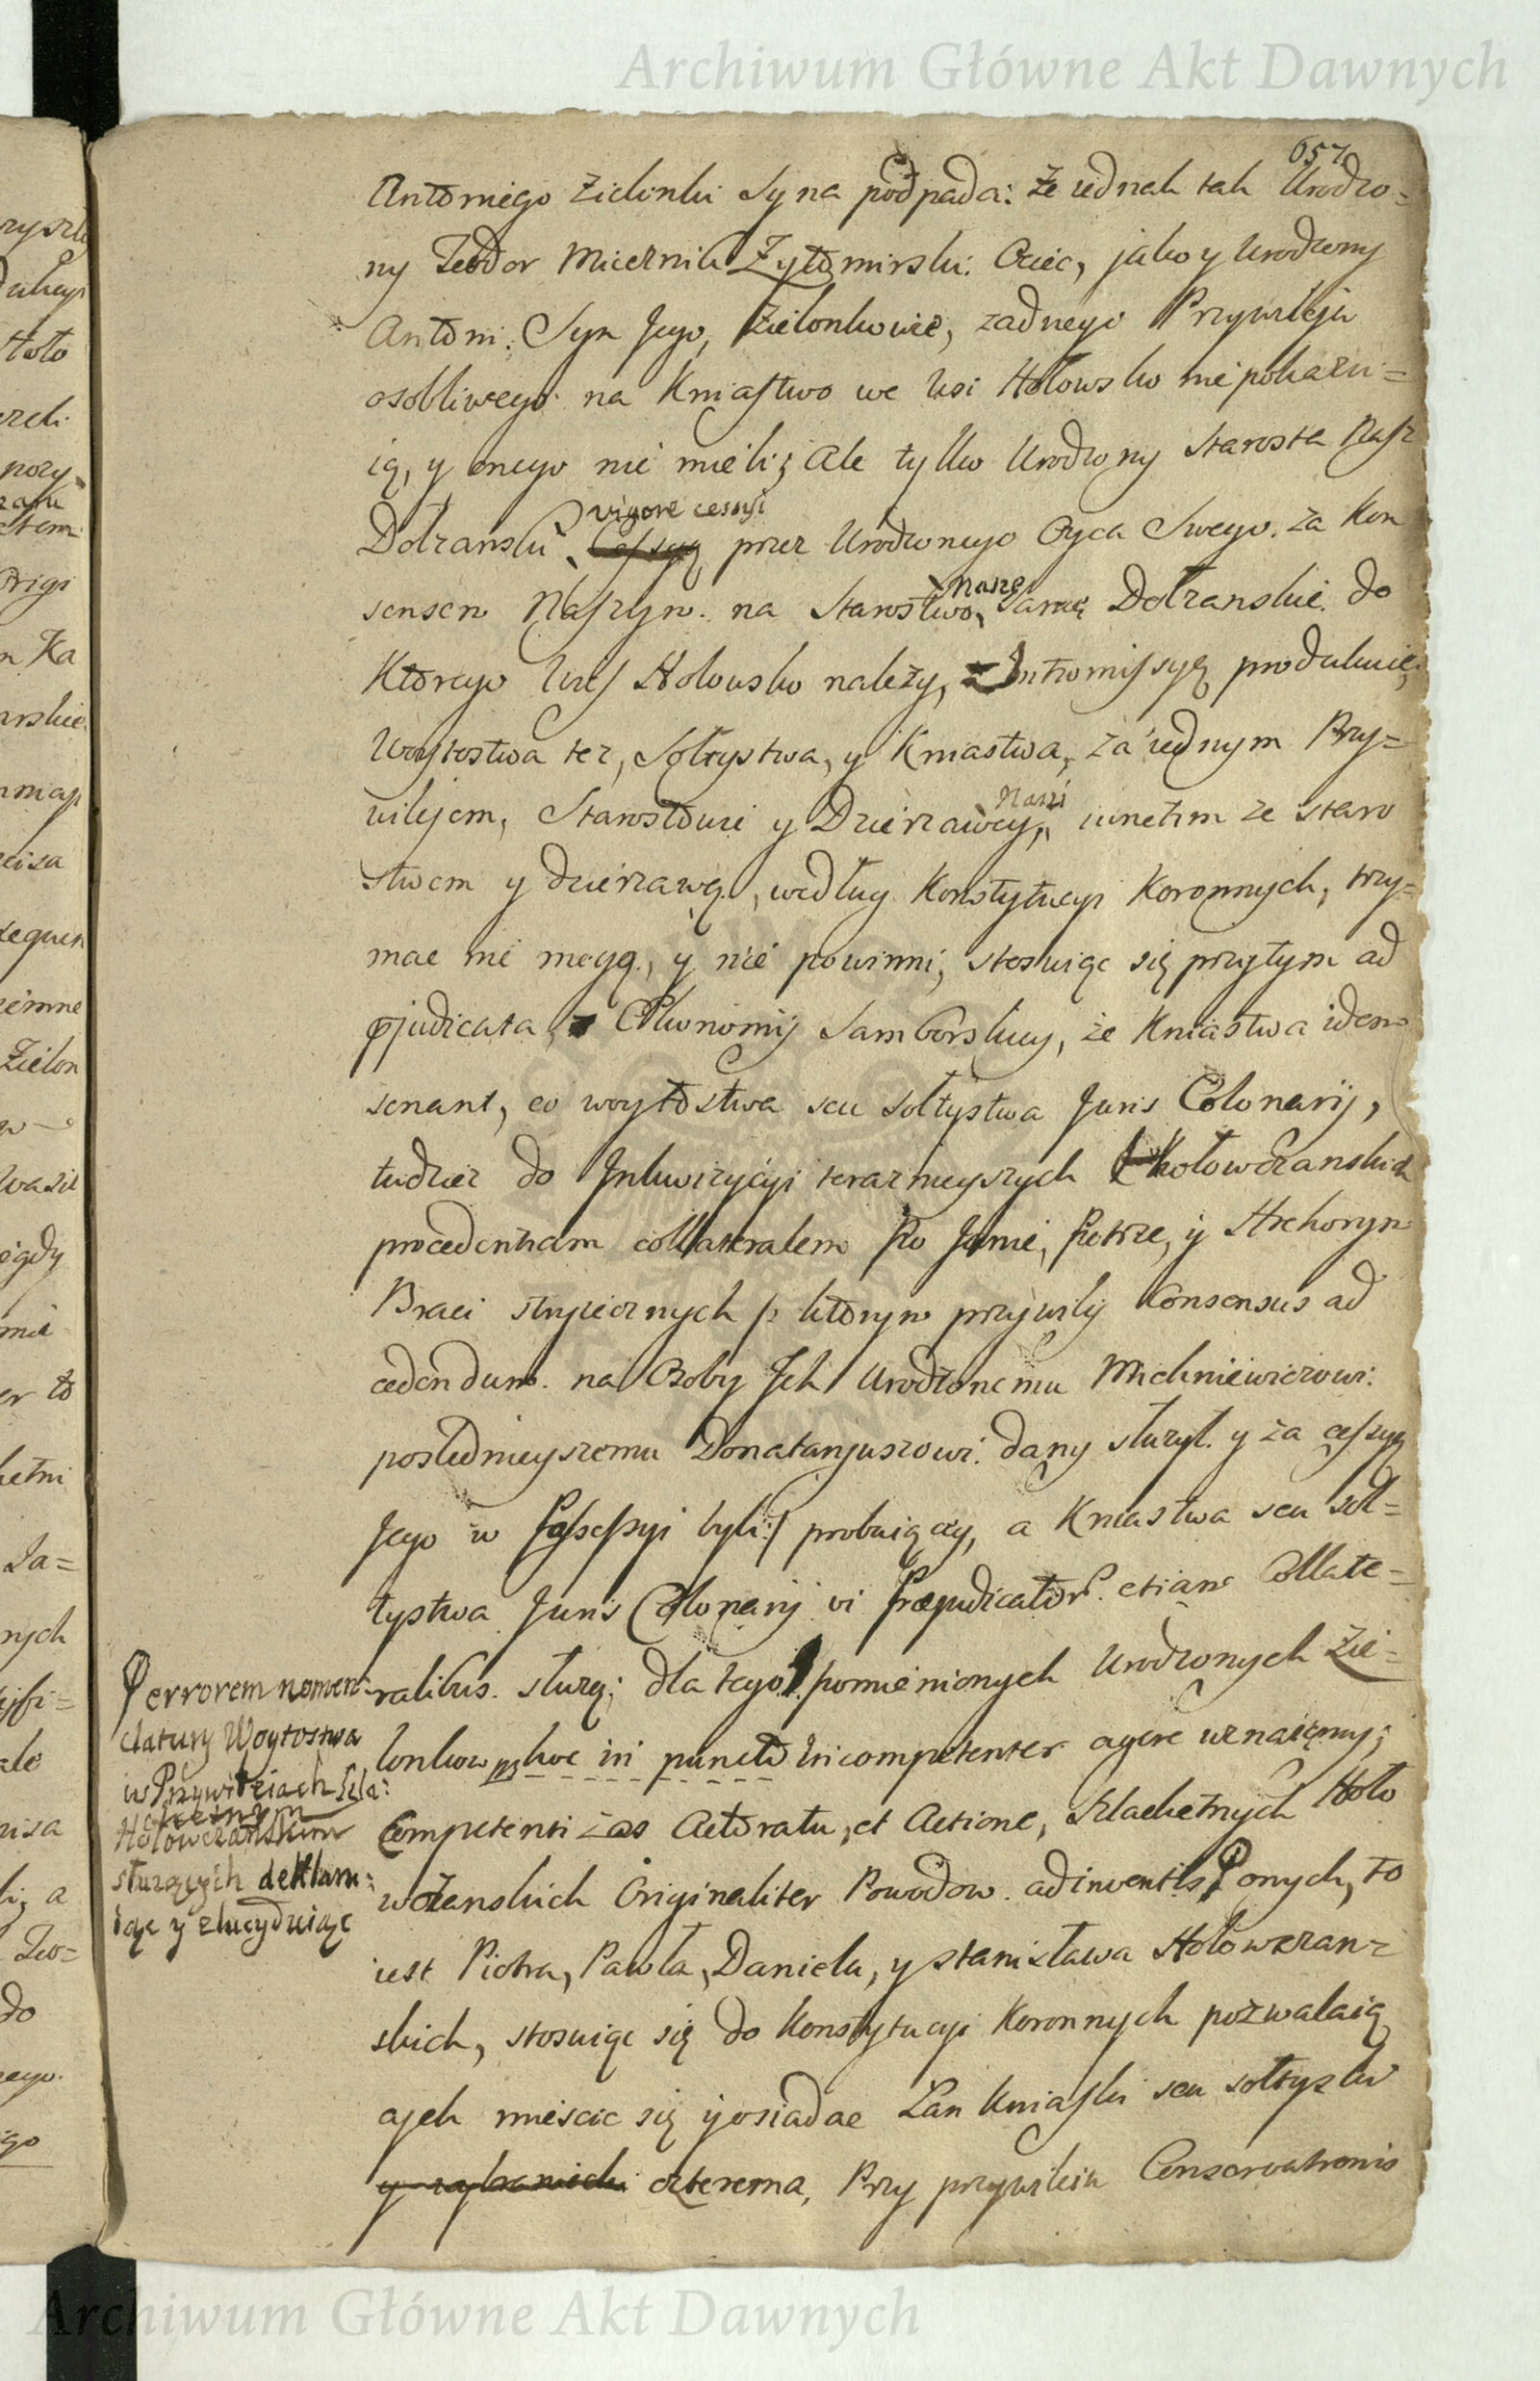 Archiwum Główne Akt Dawnych
657
Antoniego Zielonki Syna podpada: Że iednak tak Urodzo=
ny Teodor Miecznik Żytomirski Ociec, jako y Urodzony
Antoni Syn Jego, Zielonkowie, zadnego Przywileju
osobliwego na Kniastwo we Wsi Hołowsko nie pokazu=
ią, y onego nie mieli; Ale tylko Urodzony Starosta Nasz
vigore cessyi
Dolzanski, Cessyą przez Urodzonego Oyca Swego za Kon
Nasze
sensem Naszym na Starostwo, Dolzanskie do
Ktorego Wieś Hołowsko należy, Intromissyą produkuie,
Woytostwa tez, Sołtystwa, y Kniastwa, za iednym Przy=
Nasi
wilejem, Starostowie y Dzierzawcy, iunctim ze staro
stwem y dzierzawą, według Konstytucyi Koronnych, trzy=
mac nie mogą, y nie powinni, stosuiąc się przytym ad
pjudicata Ekonomij Samborskiey, że Kniastwa idem
sonant, co woytostwa seu sołtystwa Juris Colonarij,
tudzież do Inkwizycyi teraznieyszych Hołowczanskich
procedentiam collateralem po Janie, Pietrze, y Hrehorym
Braci stryiecznych /: ktorym przywiley Consensus ad
cedendum na Osoby Ich Urodzonemu Michniewiczowi
poslednieyszemu Donataryuszowi dany służył y za cessyą
Jego w Possessyi byli :/ probuiący, a Kniastwa seu soł=
tystwa Juris Colonarij vi Præjudicator. etiam Collate=
ralibus służą; dla tego pomienionych Urodzonych Zie=
lonkow hoc in puncto incompetenter agere uznaięmy;
Competenti zas Actoratu, et Actione, Szlachetnych Hoło
wczanskich Originaliter Powodow adinventis onych, to
iest Piotra, Pawła, Daniela, y Stanisława Hołowczan=
skich, stosuiąc się do Konstytucyi Koronnych pozwalaią
cych miescic się y osiadac Łan Kniaski seu sołtyski
czterema, Przy przywileiu Conservationis
errorem nomen
clatury Woytostwa
w Przywileiach Szla:
chetnym
Hołowczanskim
służących deklaru:
iąc y elucyduiąc
Archiwum Główne Akt Dawnych